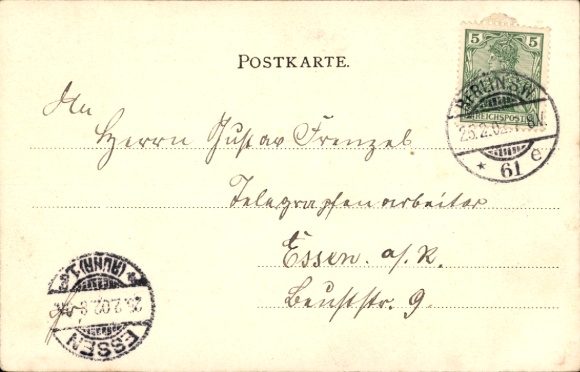 POSTKARTE.
5
REICHSPOST
BERLIN S.W.
61 e
An
Herrn Gustav Frenzel
Telegraphenarbeiter
Essen. a/R.
Beuststr. 9.
ESSEN
(RUHR) 1